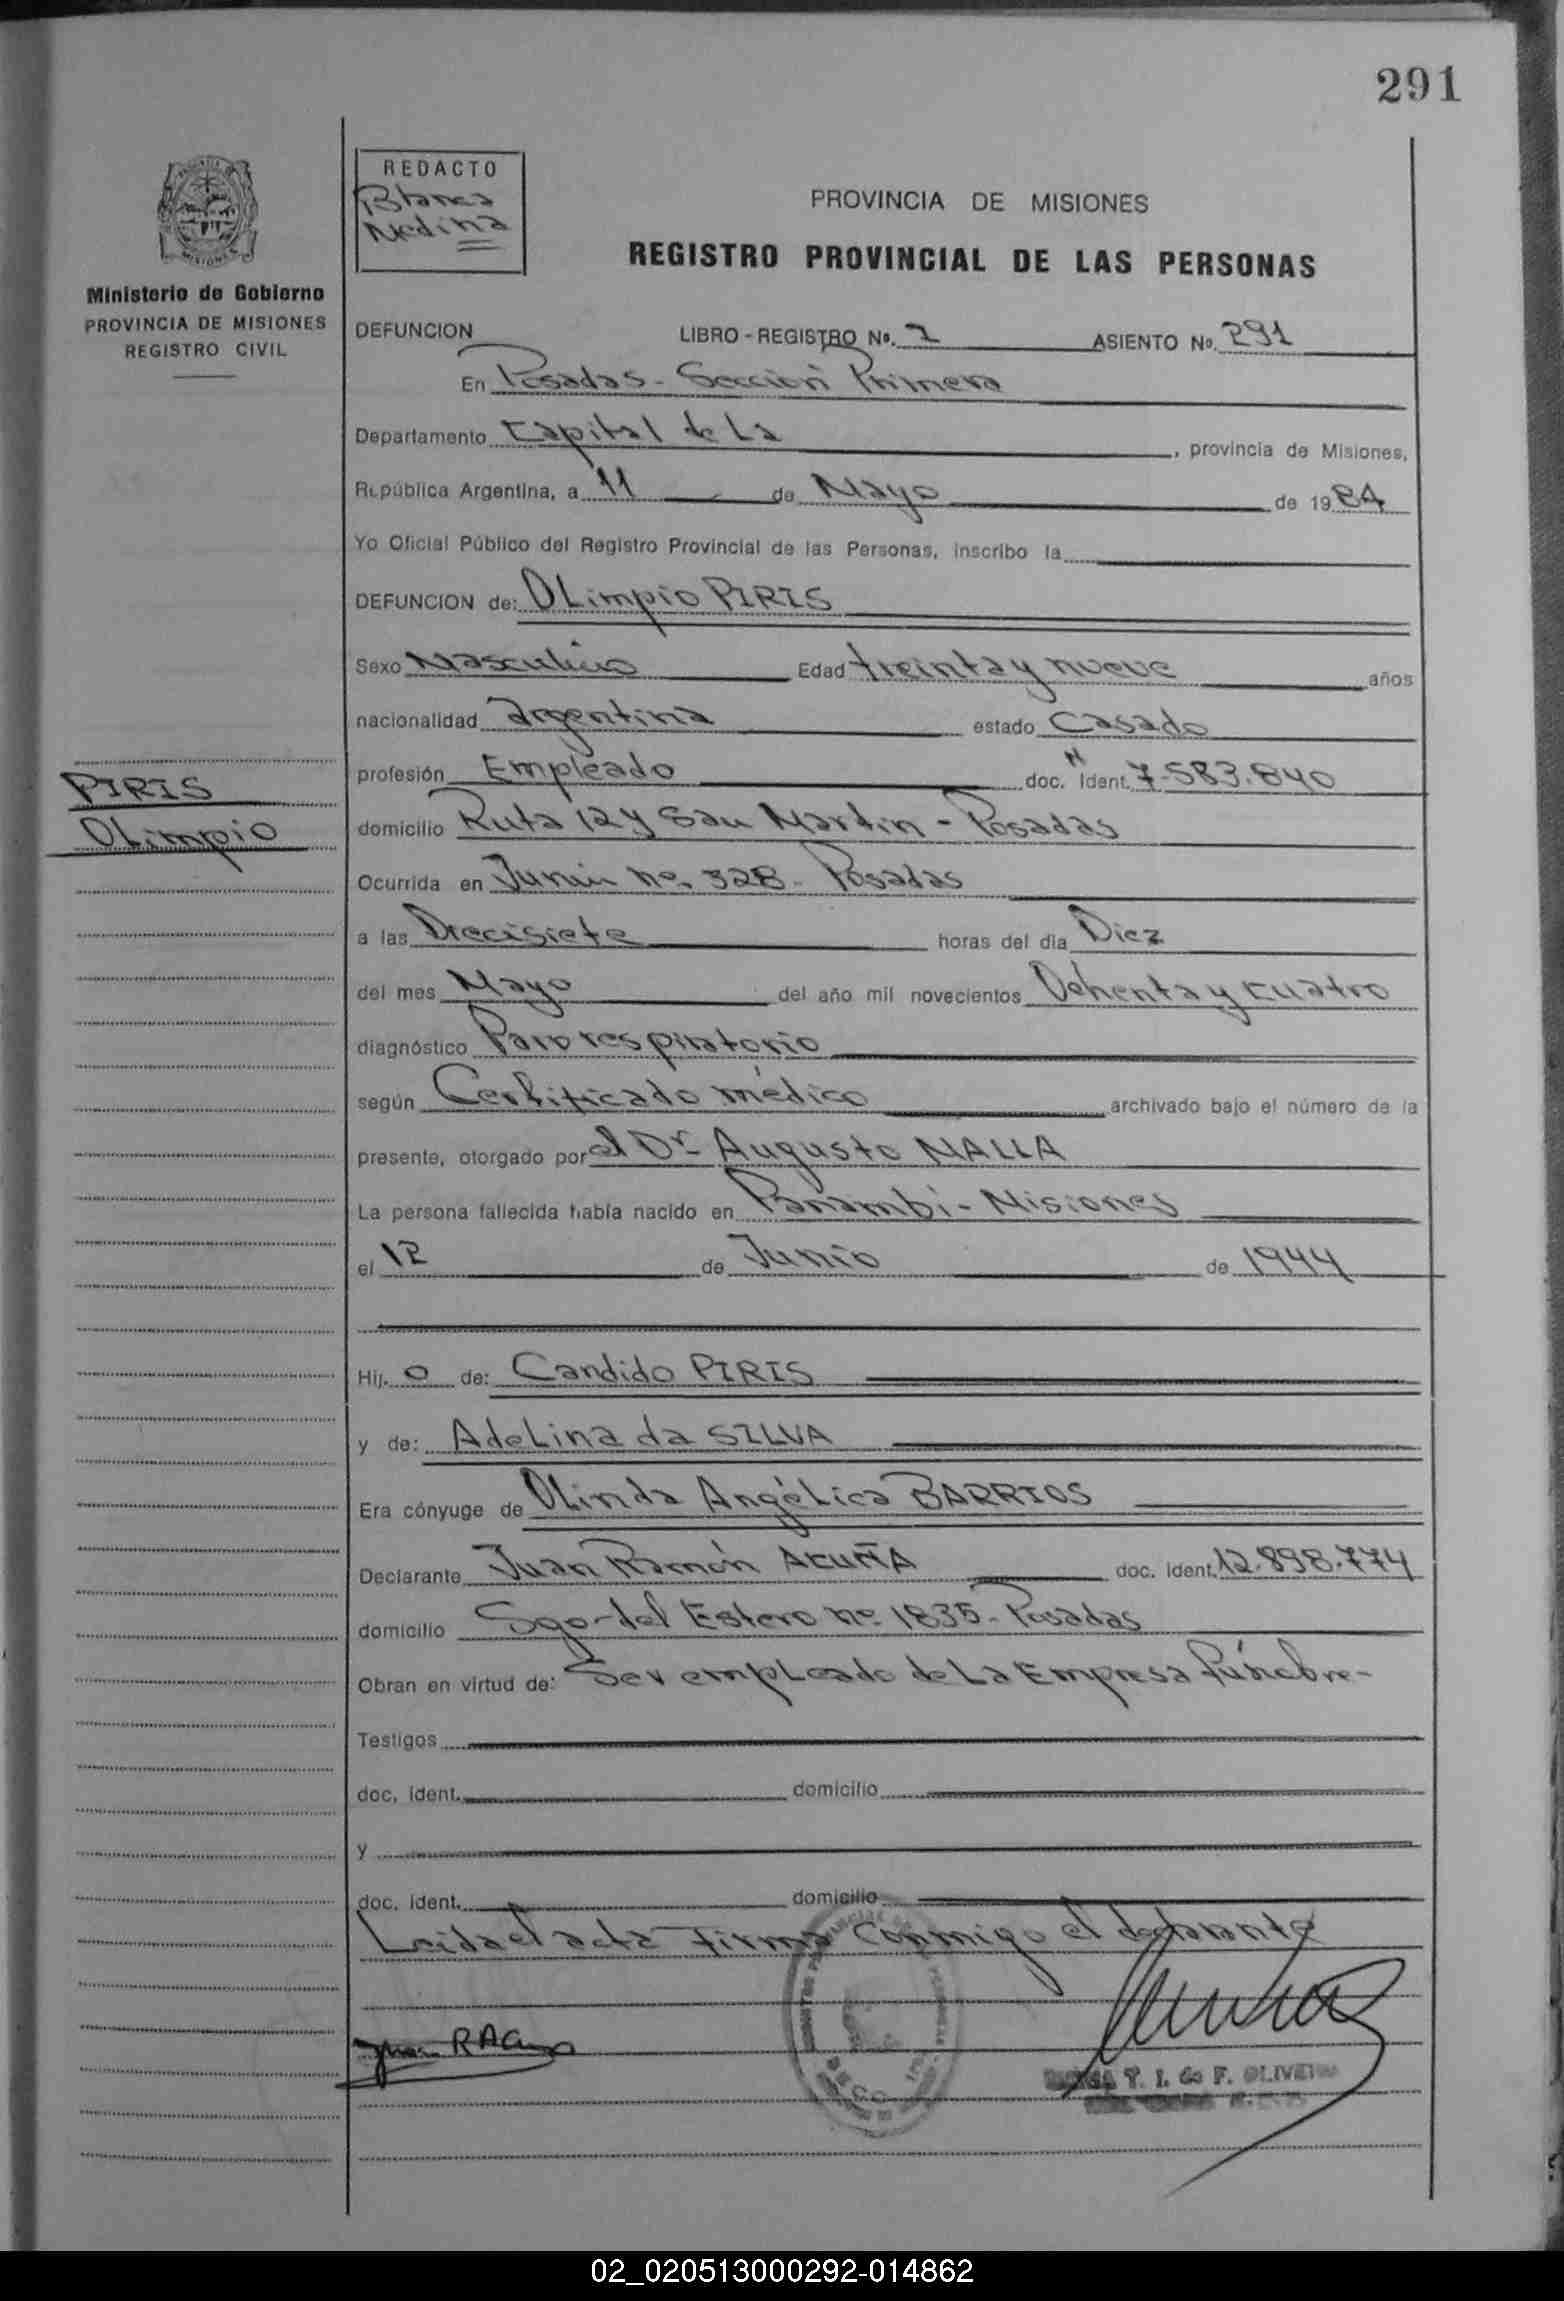 291
REDACTO
Blanca
Medina
PROVINCIA DE MISIONES
REGISTRO PROVINCIAL DE LAS PERSONAS
Ministerio de Gobierno
PROVINCIA DE MISIONES
REGISTRO CIVIL
DEFUNCION LIBRO - REGISTRO Nº. 2 ASIENTO Nº. 291
En Posadas - Sección Primera
Departamento Capital de La, provincia de Misiones,
República Argentina, a 11 de Mayo de 1984
Yo Oficial Público del Registro Provincial de las Personas, inscribo la
DEFUNCION de: OLimpio PIRIS
Sexo Masculino Edad treinta y nueve años
nacionalidad argentina estado Casado
profesión Empleado doc. Ident. 7.583.840
PIRIS
OLimpio
domicilio Ruta 12 y San Martin - Posadas
Ocurrida en Junin nº. 328 - Posadas
a las Diecisiete horas del día Diez
del mes Mayo del año mil novecientos Ochenta y cuatro
diagnóstico Paro respiratorio
según Certificado médico archivado bajo el número de la
presente, otorgado por el Dr Augusto MALLA
La persona fallecida había nacido en Panambí - Misiones
el 12 de Junio de 1944
Hij. o de: Candido PIRIS
y de: AdeLina da SILVA
Era cónyuge de OLinda AngéLica BARRIOS
Declarante Juan Ramón ACUÑA doc. Ident. 12.898.774
domicilio Sgo-del Estero nº 1835 - Posadas
Obran en virtud de: Ser empLeado de La Empresa fúnebre-
Testigos
doc. ident. domicilio
y
doc. ident. domicilio
Leida el acta Firma Conmigo el declarante
T. I. de F. OLIVEIRA
02_020513000292-014862